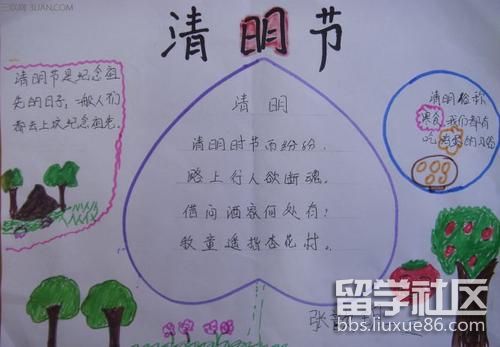 三联网 3LIAN.COM
清明节
清明节是纪念祖
先的日子,一般人们
都去上坟纪念祖先.
清明
清明时节雨纷纷.
路上行人欲断魂.
借问酒家何处有?
牧童遥指杏花村.
清明俗称
寒食,我们都有
吃鸡蛋的习俗
张
留学社区
bbs.liuxue86.com